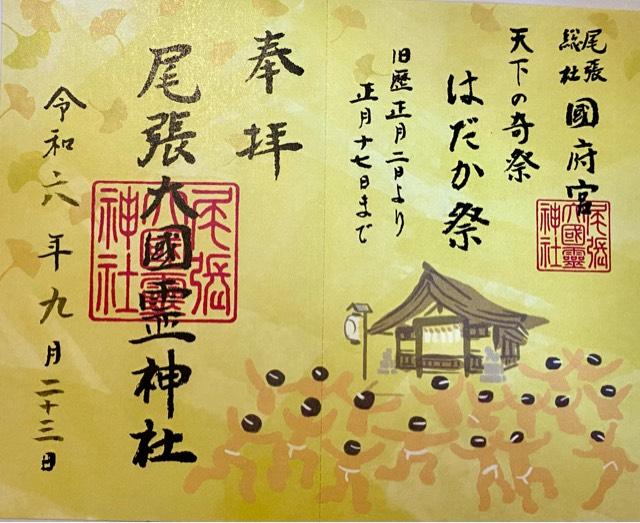 尾張
総社
國府宮
天下の奇祭
はだか祭
旧歴正月二日より
正月十七日まで
尾張
大國靈
神社
奉拝
尾張大國霊神社
尾張
大國靈
神社
令和六年九月二十三日